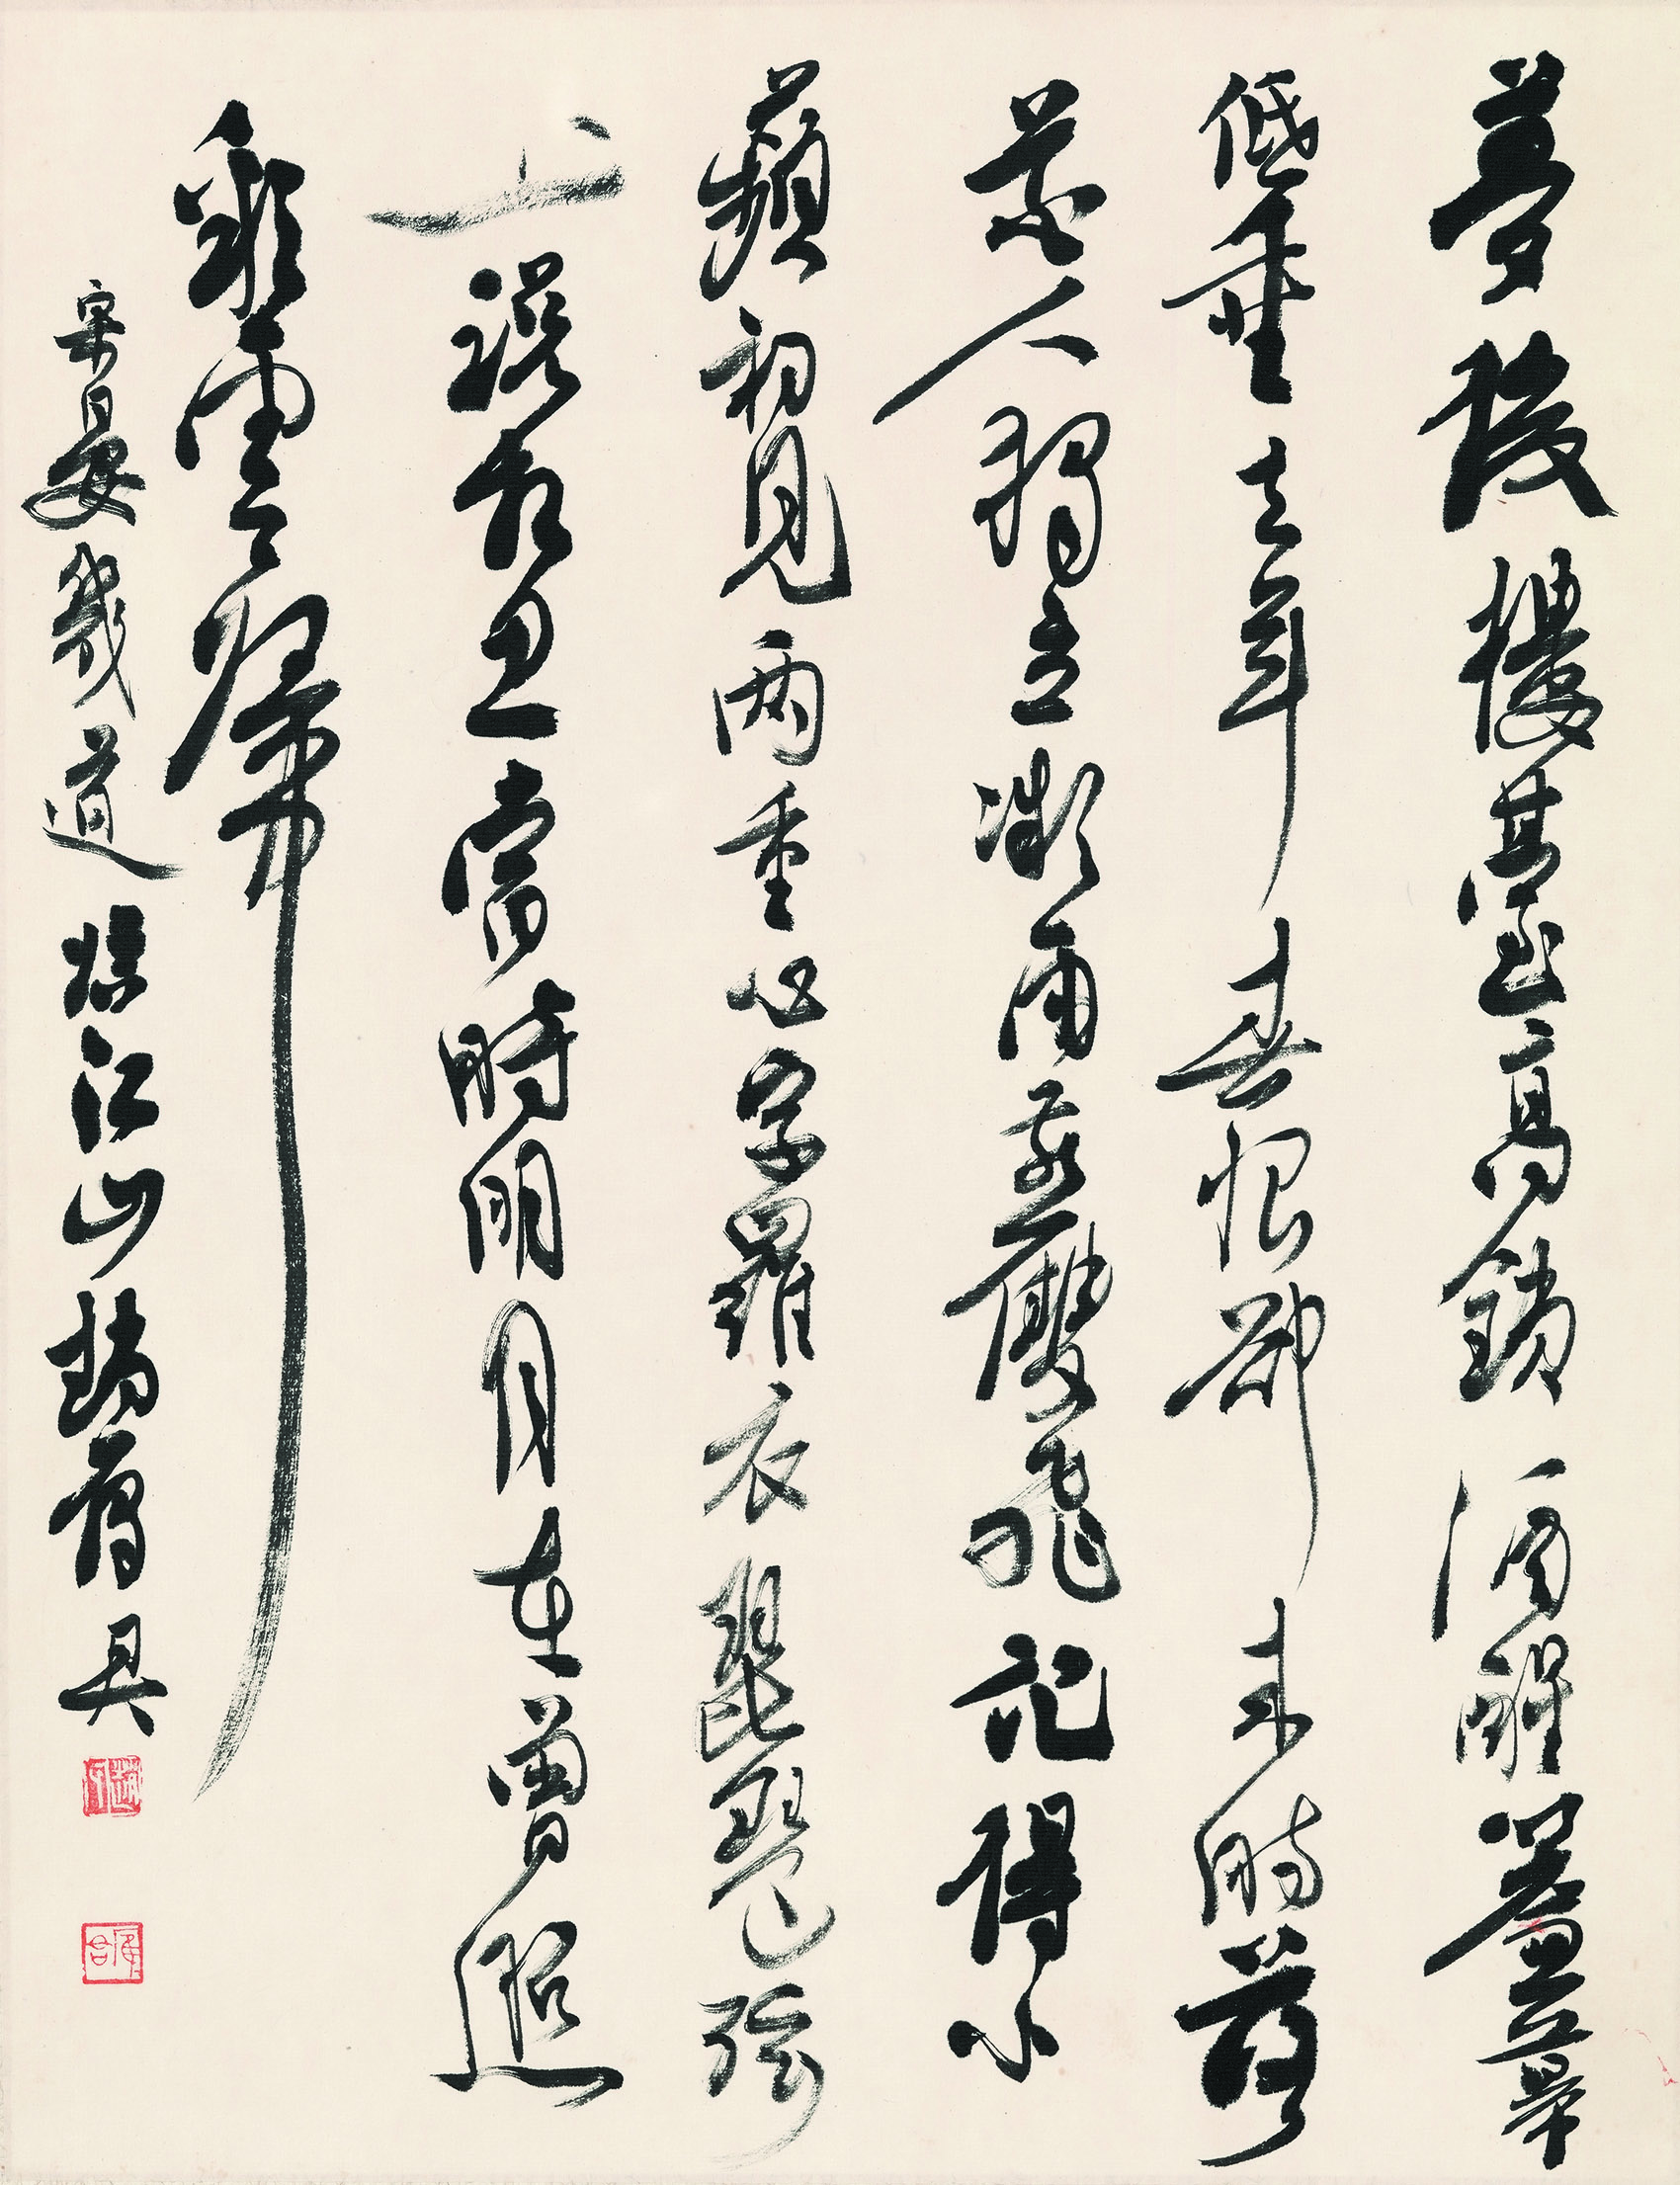 夢後樓臺高鎖酒醒簾幕
低垂去年春恨卻來時落
花人獨立微雨燕雙飛記得小
蘋初見兩重心字羅衣琵琶弦
上說相思當時明月在曾照
彩雲歸
宋晏幾道臨江